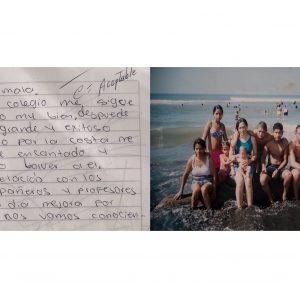 mala
C = Aceptable
colegio me sigue
o my bien, despuede
grande y exitoso
o por la costa me
e encantado
o bolver a el
elacion con los
pañeros y profesores
dia mejora por
nos vamos conocien-